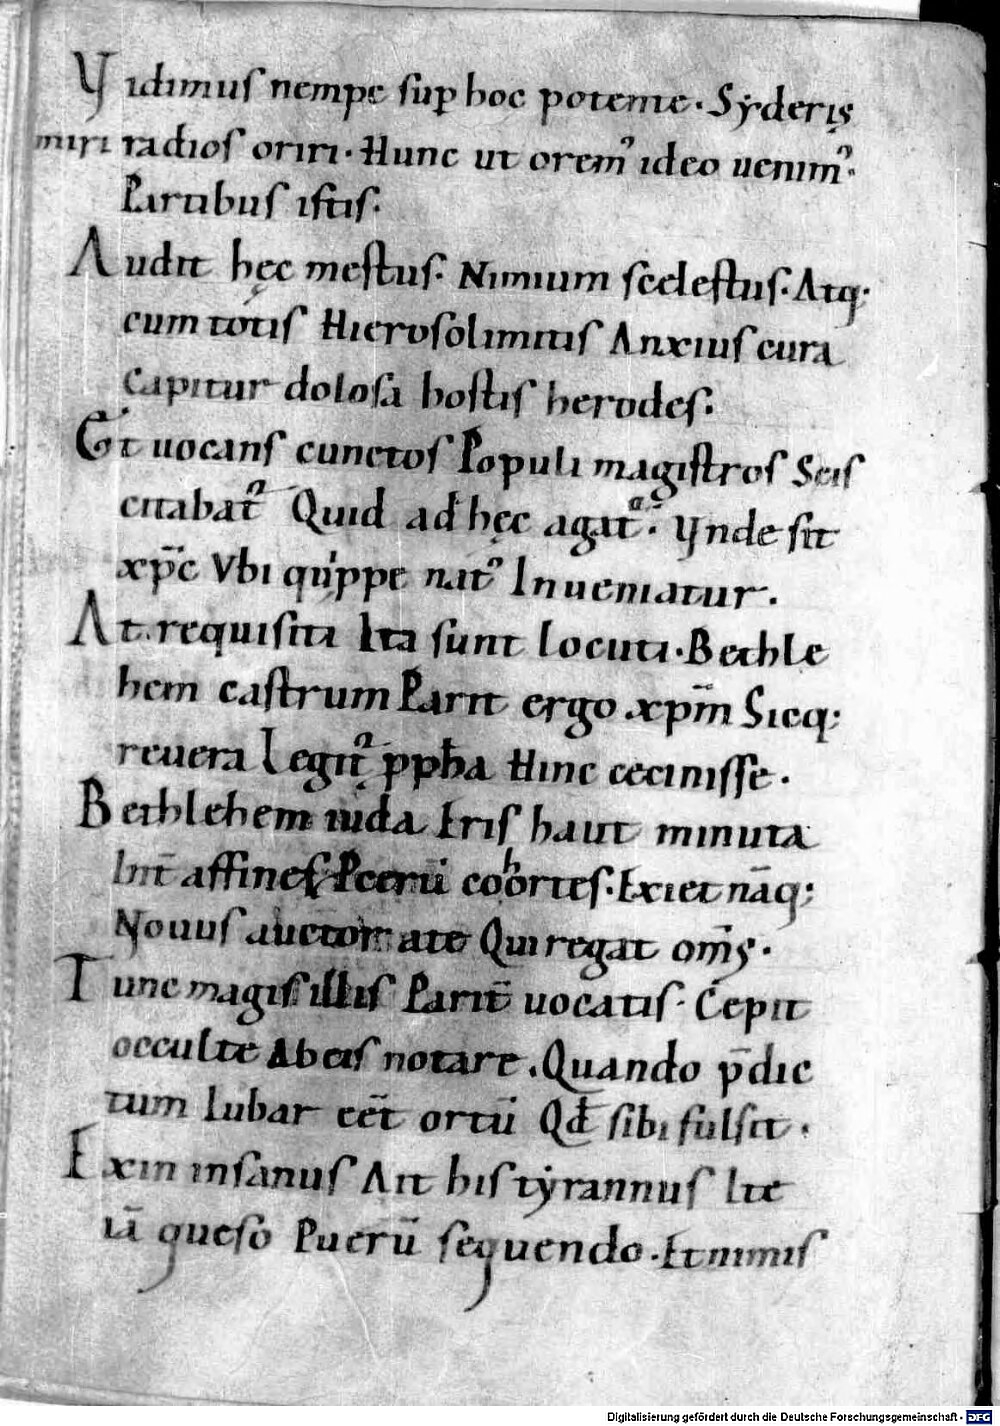 Vidimus nempe suꝑ hoc potente. Syderis
miri radios oriri. Hunc ut orem᷒ ideo uenim᷒.
Partibus istis.
Audit hęc mestus. Nimium scelestus. Atq;
cum totis Hierosolimitis Anxius cura
Capitur dolosa hostis herodes.
Et uocans cunctos Populi magistros Scis
citabat᷒ Quid ad hęc agat᷒. Vnde sit
xp̄c Vbi quippe nat᷒ Inueniatur.
At requisiti Ita sunt Locuti. Bethle
hem castrum Parit ergo xp̄m Sicq;
reuera Legit᷒ ꝓph̄a Hinc cecinisse.
Bethlehem iuda Eris haut minuta
Int̄ affines Pcerū cohortes. Exiet nāq;
Novus auctor ate Qui regat om̄s.
Tunc magis illis Parit̄ uocatis. Cepit
occulte Ab eis notare. Quando p̄dic
tum Iubar eēt ortū Qd̄ sibi fulsit.
Exin insanus Ait his tyrannus Ite
iā queso Puerū sequendo. Et nimis
Digitalisierung gefördert durch die Deutsche Forschungsgemeinschaft - DFG